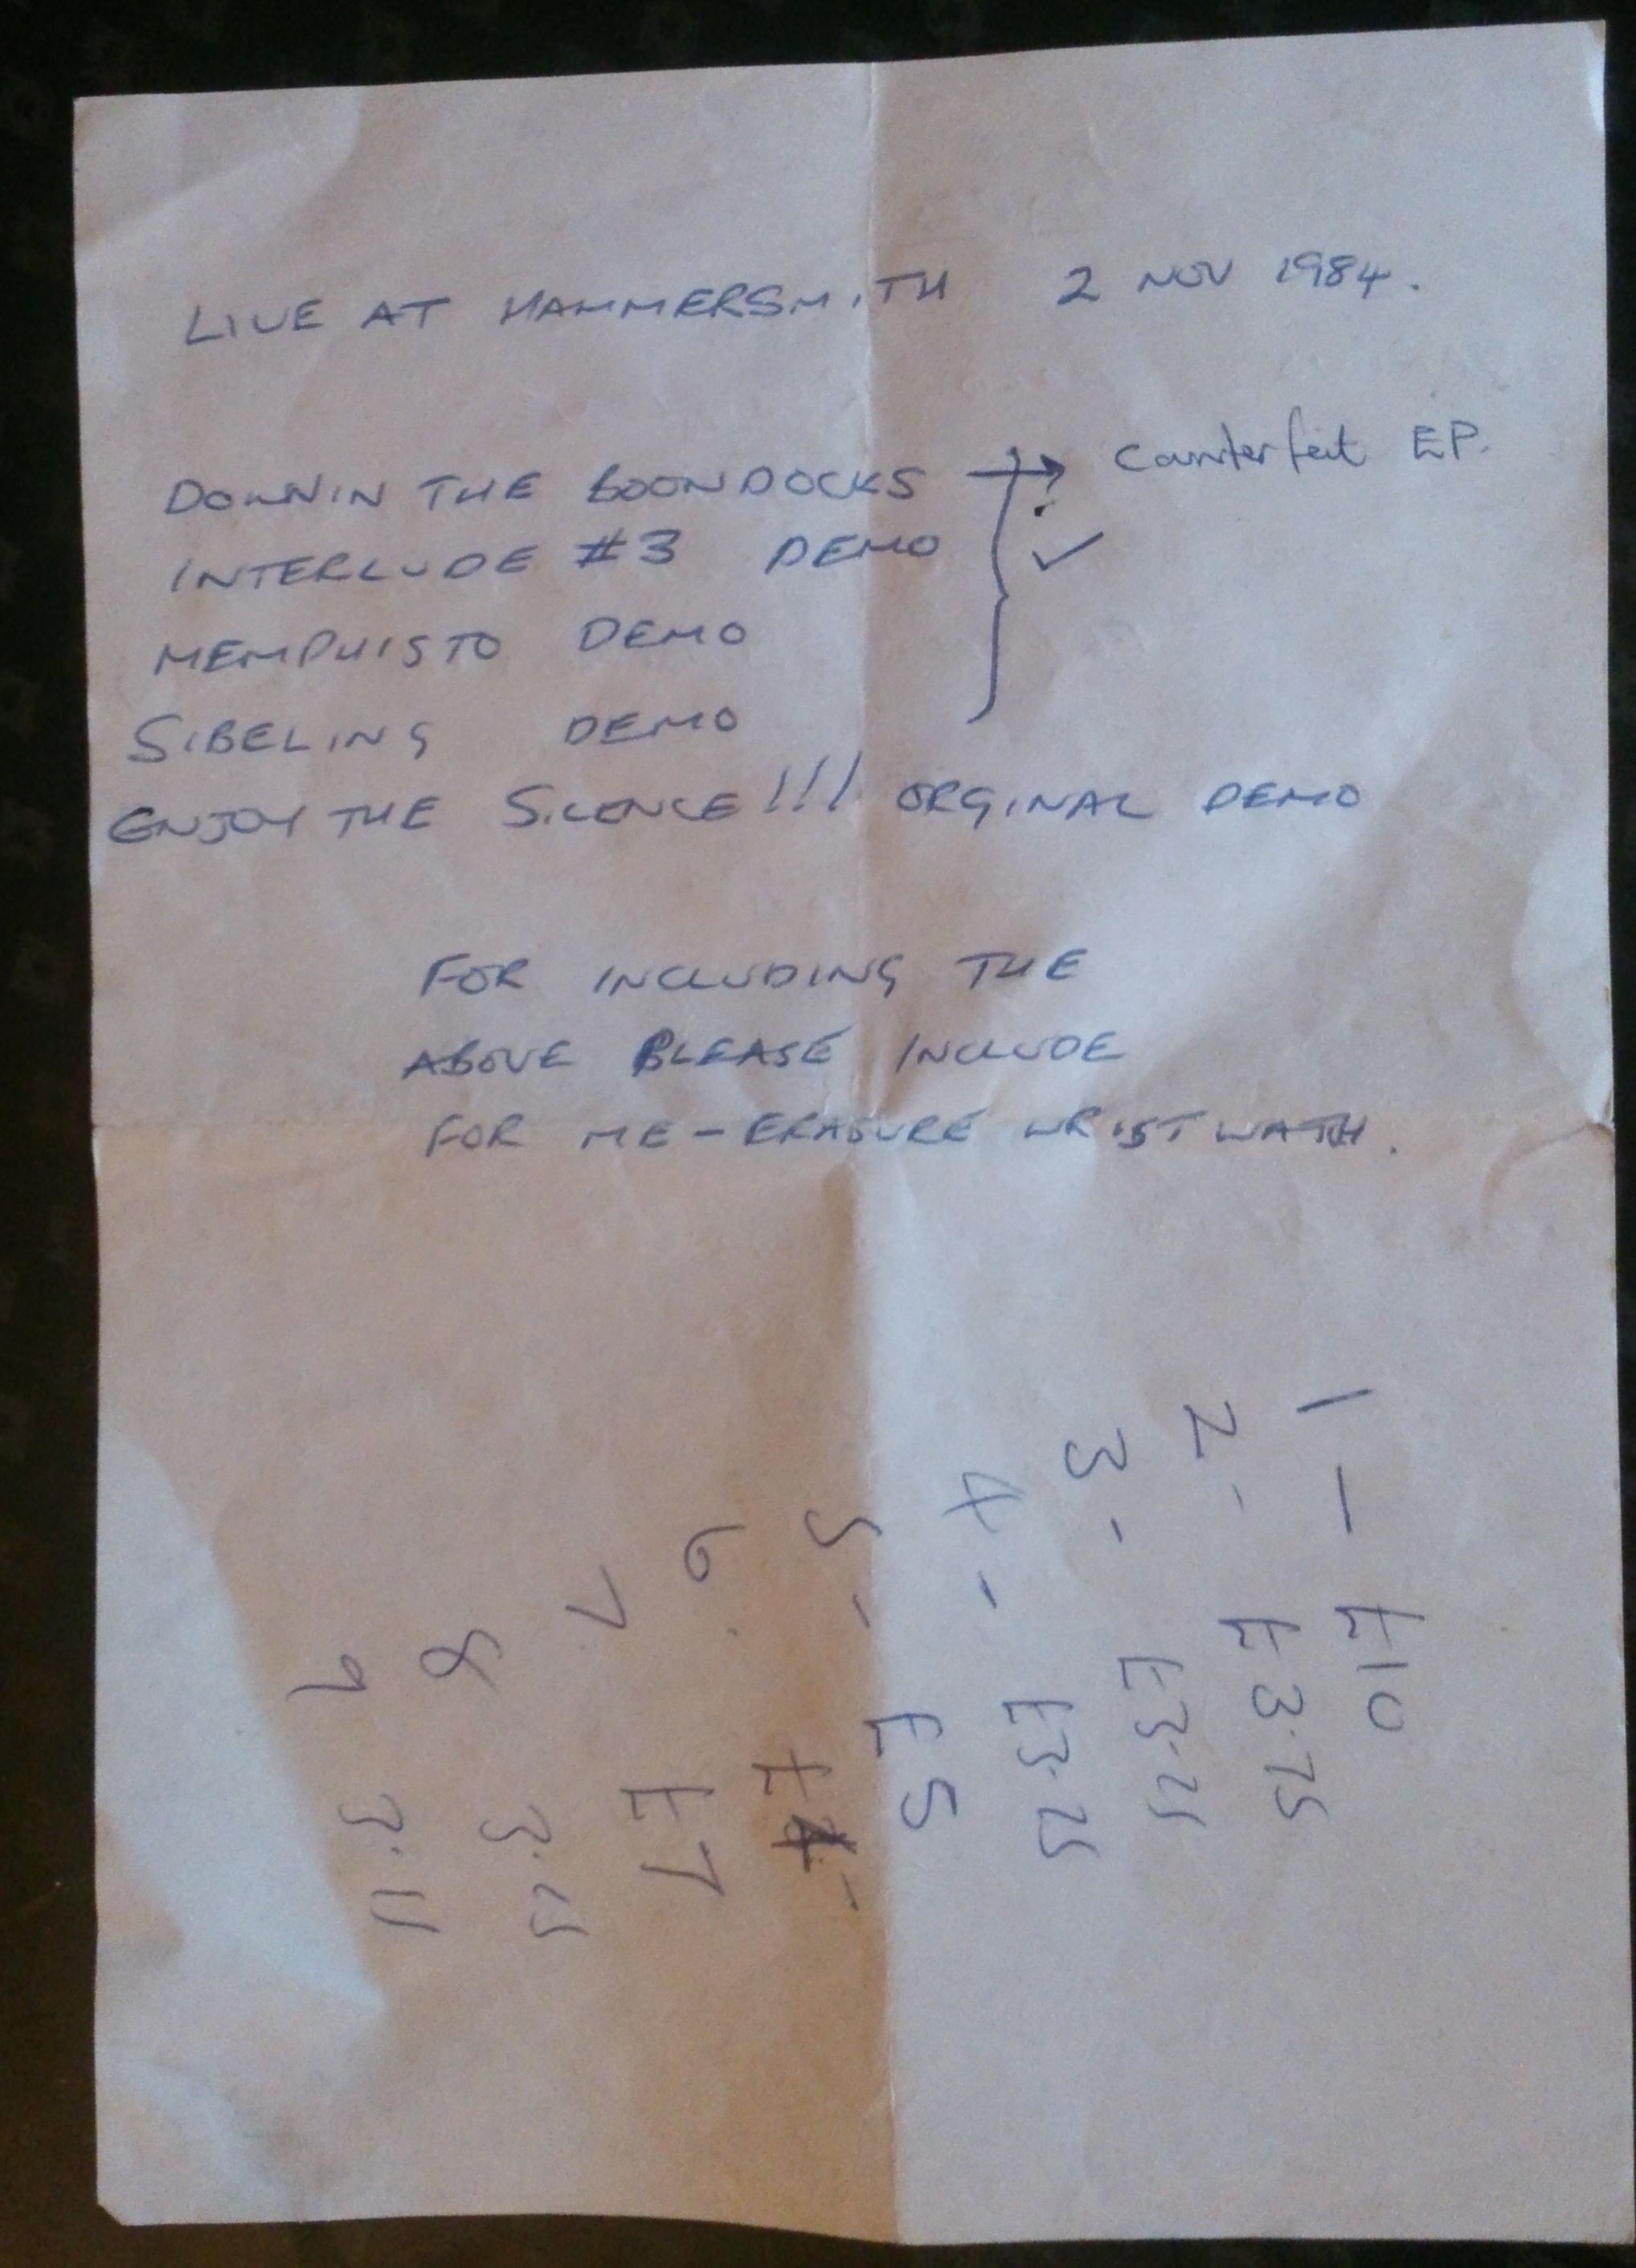 LIVE AT HAMMERSMITH 2 NOV 1984.
DOWNIN THE BOONDOCKS → Counterfeit EP.
INTERLUDE #3 DEMO ✓
MEMPHISTO DEMO
SIBELING DEMO
ENJOY THE SILENCE!!! ORGINAL DEMO
FOR INCLUDING THE
ABOVE PLEASE INCLUDE
FOR ME - ERASURE WRISTWATH.
1 — £10
2 - £3.75
3 - £3.25
4 - £3.25
5 - £5
6
7 £7
8 3.25
9 3.11